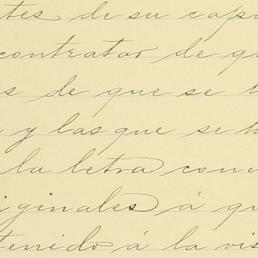 tes de su cap
contrator de q
s de que se
y las que se h
la letra con
iginales á qu
tenido á la vis